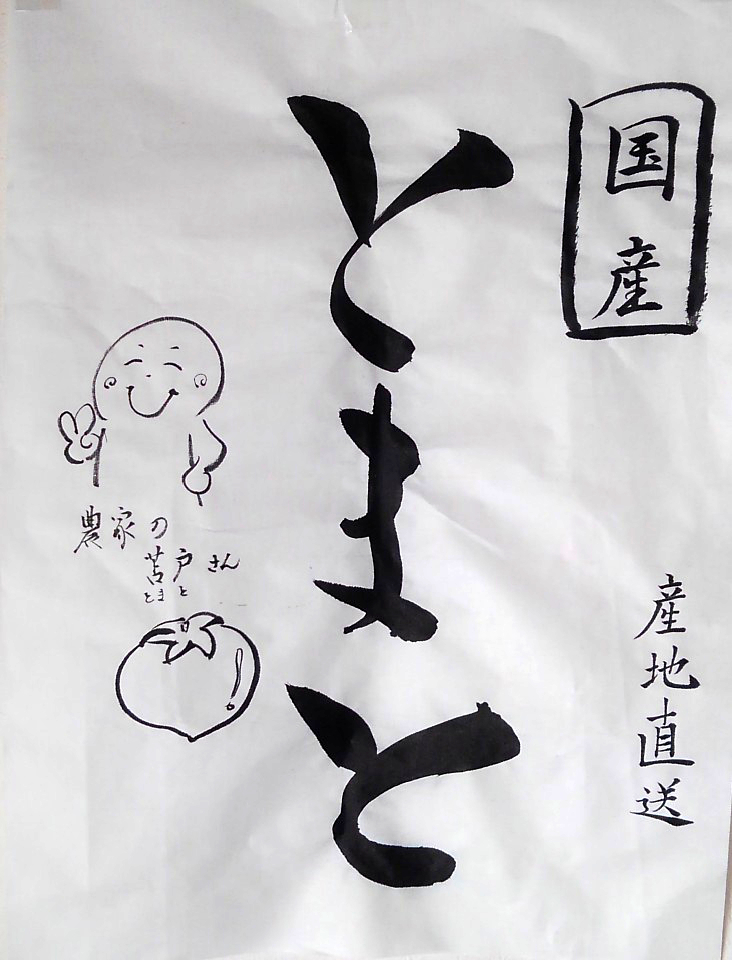 国産
産地直送
とまと
農家の
苫戸さん
とまと